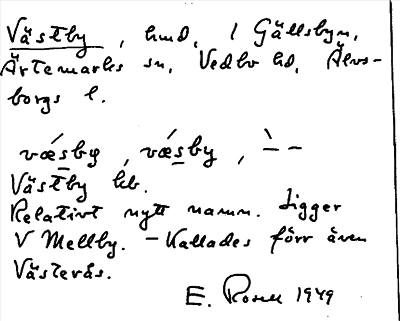 Västby, hmd, i Gällsbyn,
Ärtemarks sn, Vedbo hd, Älvs-
borgs l.
væsby, væsby, `– –
Västby kb.
Relativt nytt namn. Ligger
V Mellby. – Kallades förr även
Västerås.
E. Rosell 1949